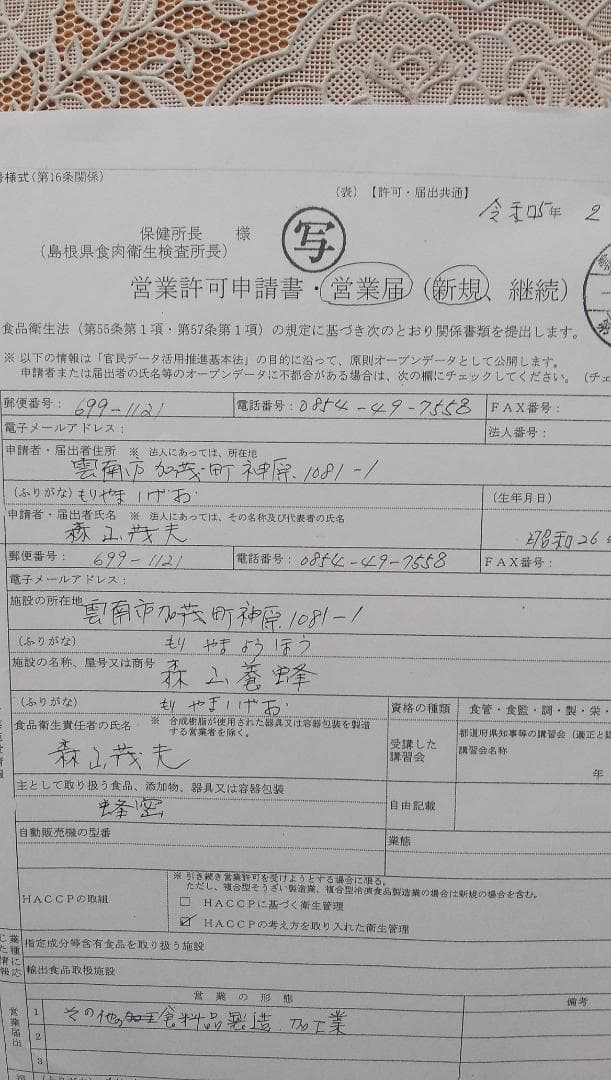 号様式(第16条関係)
(表)【許可・届出共通】
令和5年 2
保健所長 様
(島根県食肉衛生検査所長)
写
営業許可申請書・営業届(新規、継続)
食品衛生法(第55条第1項・第57条第1項)の規定に基づき次のとおり関係書類を提出します。
※ 以下の情報は「官民データ活用推進基本法」の目的に沿って、原則オープンデータとして公開します。
申請者または届出者の氏名等のオープンデータに不都合がある場合は、次の欄にチェックしてください。(チェ
郵便番号: 699-1121 電話番号: 0854-49-7558 FAX番号:
電子メールアドレス: 法人番号:
申請者・届出者住所 ※ 法人にあっては、所在地
雲南市加茂町神原1081-1
(ふりがな) もりやましげお (生年月日)
申請者・届出者氏名 ※ 法人にあっては、その名称及び代表者の氏名
森山茂夫 昭和26年
郵便番号: 699-1121 電話番号: 0854-49-7558 FAX番号:
電子メールアドレス:
施設の所在地
雲南市加茂町神原1081-1
(ふりがな) もりやまようほう
施設の名称、屋号又は商号 森山養蜂
(ふりがな) もりやましげお 資格の種類 食管・食監・調・製・栄・
食品衛生責任者の氏名 ※ 合成樹脂が使用された器具又は容器包装を製造する営業者を除く。
森山茂夫
受講した講習会 都道府県知事等の講習会(適正と認
講習会名称
年
主として取り扱う食品、添加物、器具又は容器包装 自由記載
蜂蜜
自動販売機の型番 業態
HACCPの取組
※ 引き続き営業許可を受けようとする場合に限る。
ただし、複合型そうざい製造業、複合型冷凍食品製造業の場合は新規の場合を含む。
□ HACCPに基づく衛生管理
☑ HACCPの考え方を取り入れた衛生管理
業種に
じた情報
指定成分等含有食品を取り扱う施設
輸出食品取扱施設
営業届出
営業の形態 備考
1 その他の食料品製造・加工業
2
3